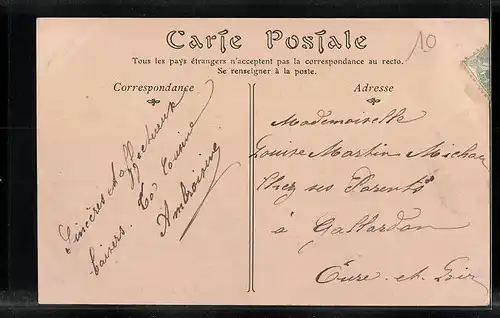 Carte Postale
10
Tous les pays étrangers n'acceptent pas la correspondance au recto.
Se renseigner à la poste.
Correspondance
Adresse
Sincères et affectueux
baisers. Ta Cousine
Ambroisine
Mademoiselle
Louise Martin Michau
Chez ses Parents
à Gallardon
Eure-et-Loir